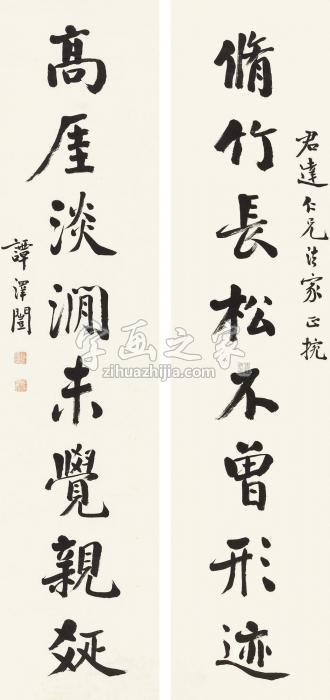 君達仁兄法家正捥
脩竹長松不曾形迹
高厓淡澗未覺親
譚澤闓
字画之家
zihuazhijia.com